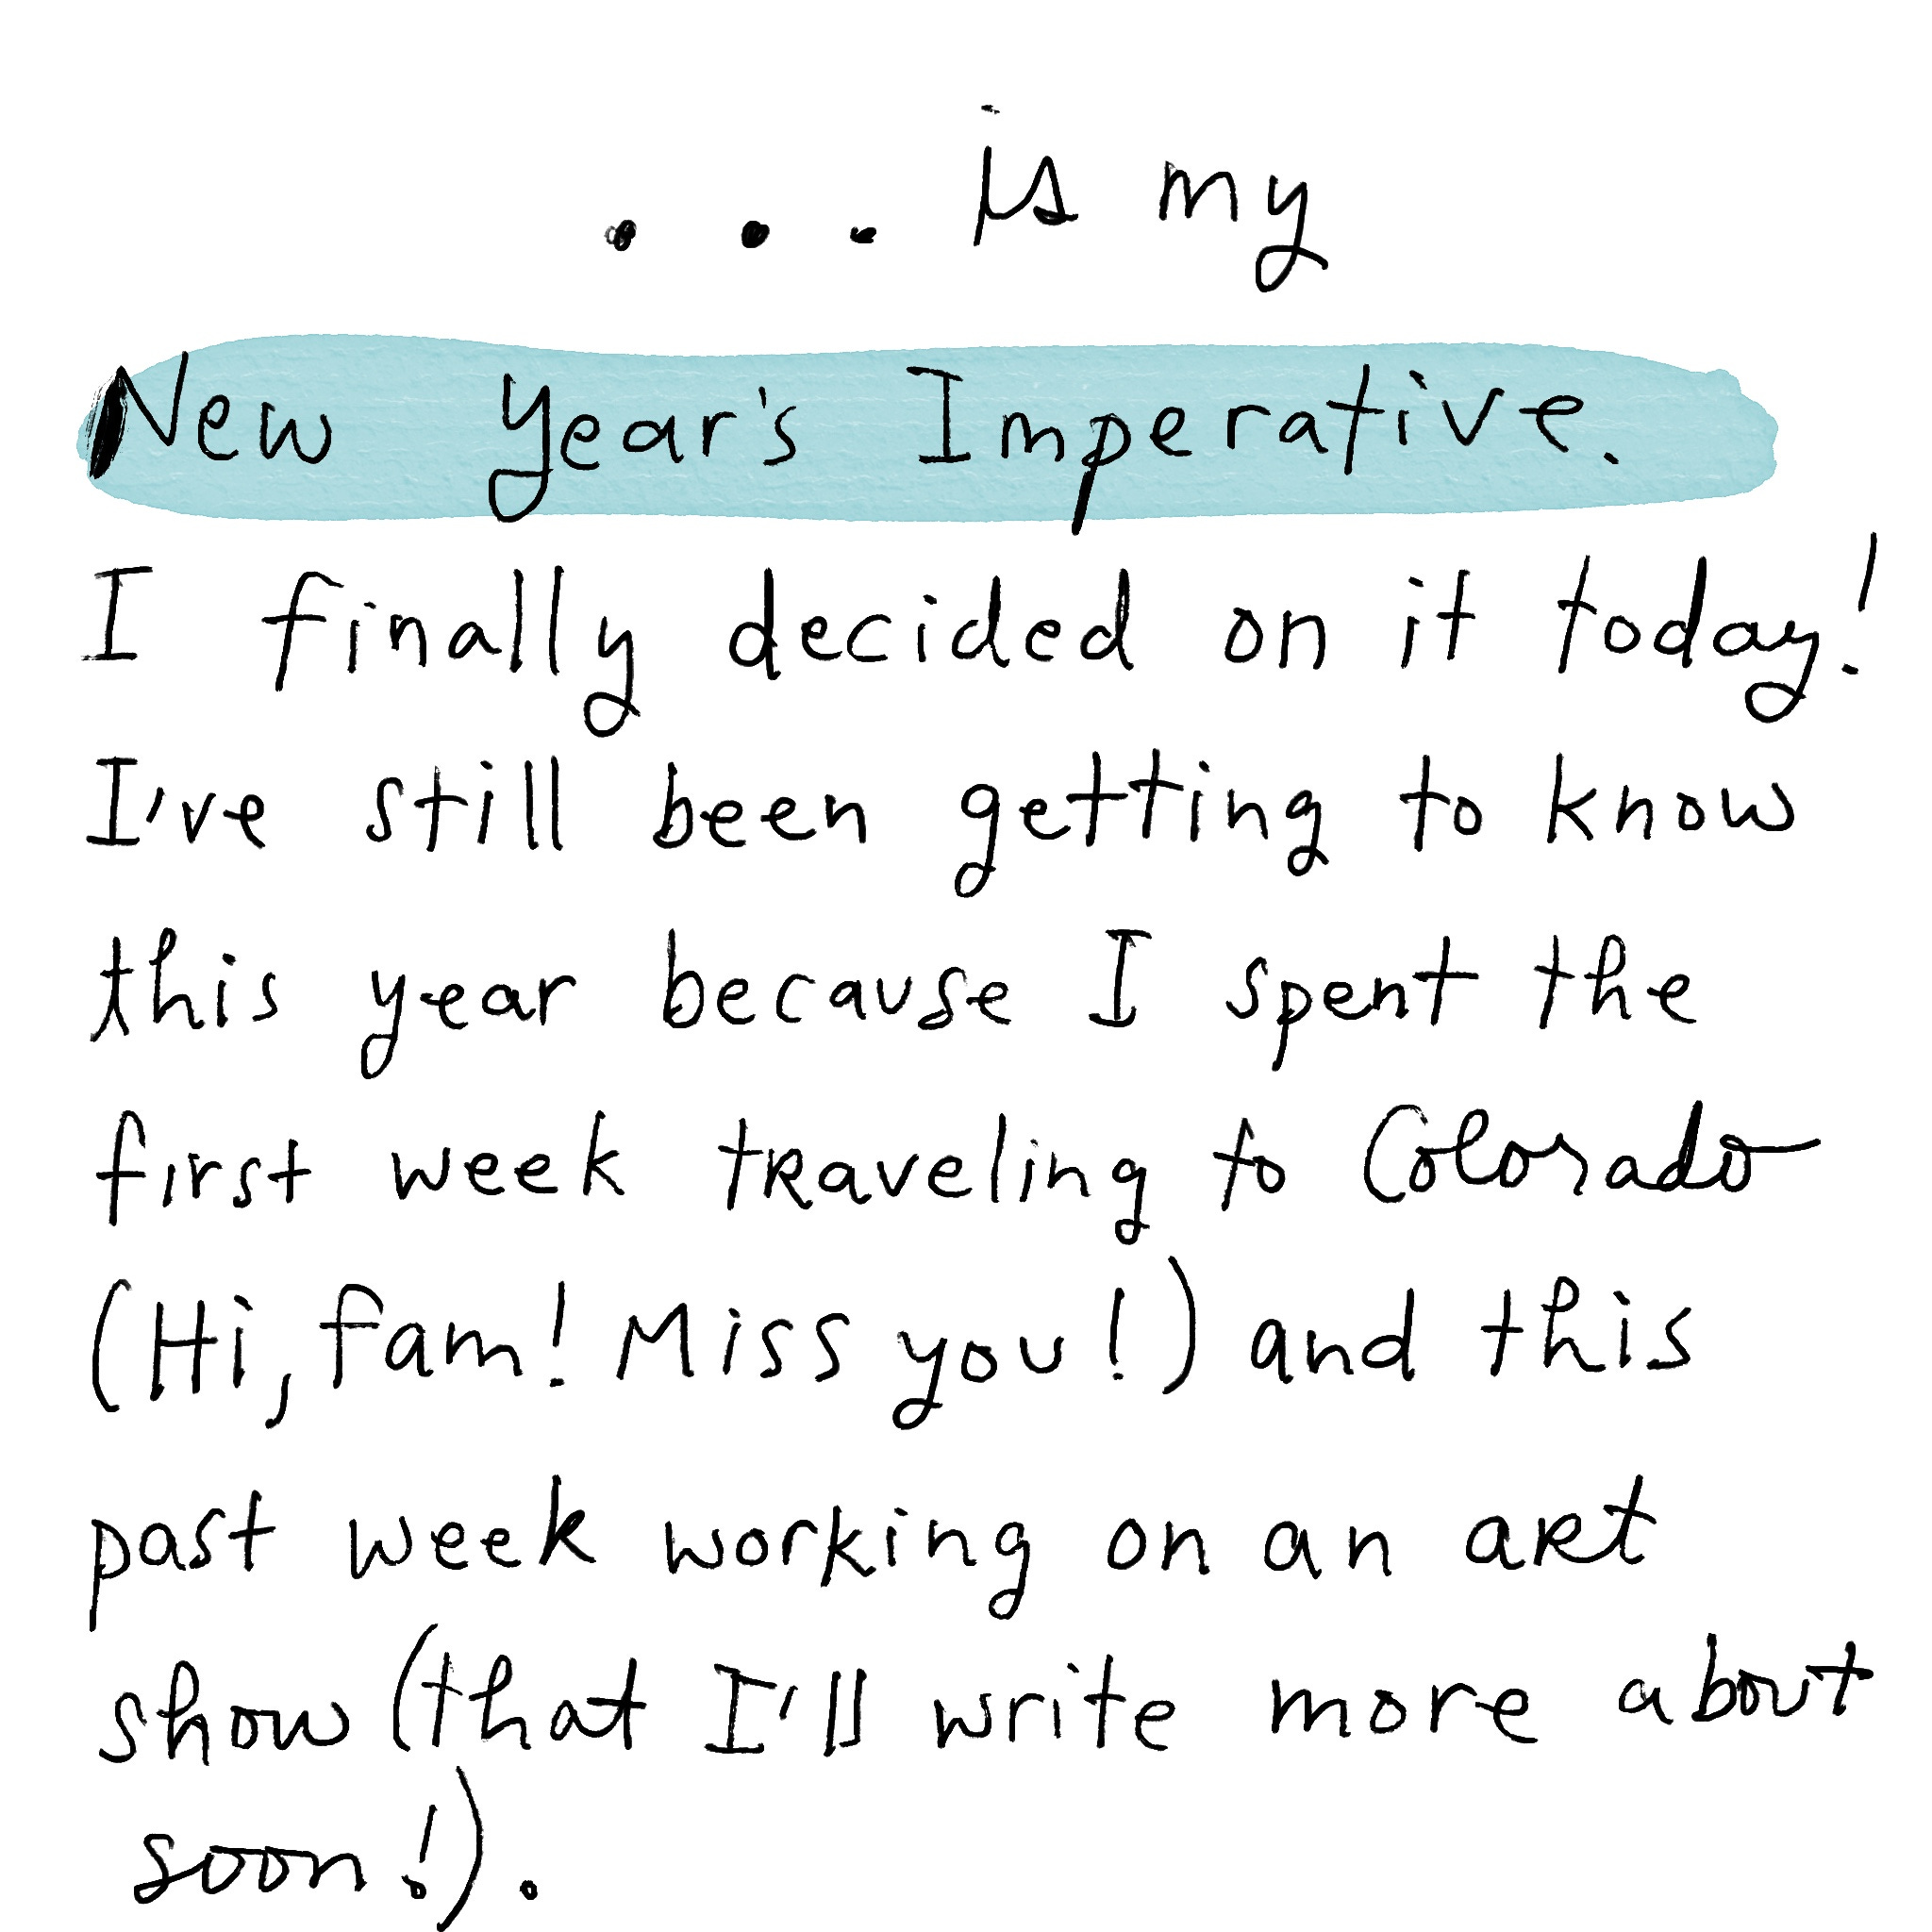 ... is my
New Year's Imperative.
I finally decided on it today!
I've still been getting to know
this year because I spent the
first week traveling to Colorado
(Hi, fam! Miss you!) and this
past week working on an art
show (that I'll write more about
soon!).